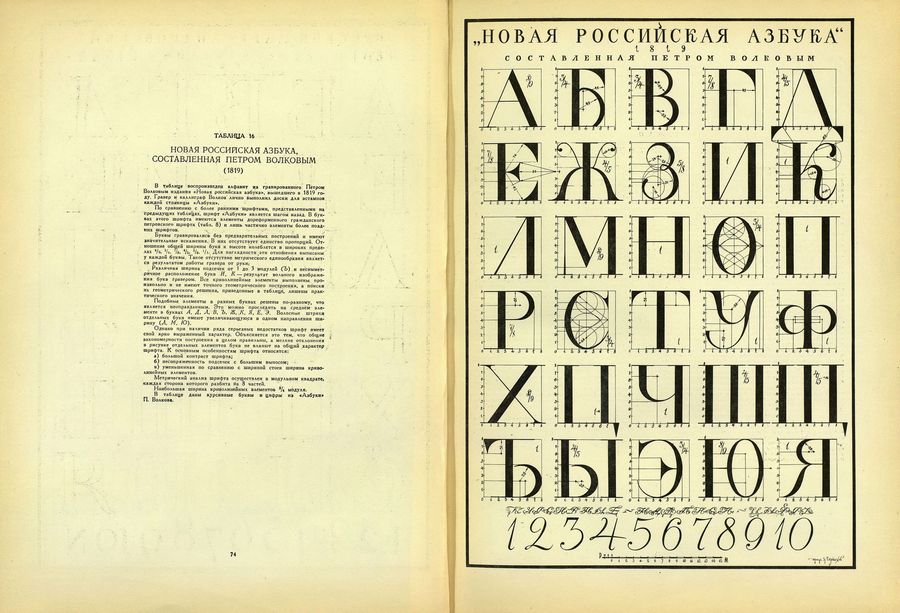 ТАБЛИЦА 16
НОВАЯ РОССИЙСКАЯ АЗБУКА,
СОСТАВЛЕННАЯ ПЕТРОМ ВОЛКОВЫМ
(1819)
В таблице воспроизведен алфавит из гравированного Петром
Волковым издания «Новая российская азбука», вышедшего в 1819 го-
ду. Гравер и каллиграф Волков лично выполнил доски для эстампов
каждой страницы «Азбуки».
По сравнению с более ранними шрифтами, представленными на
предыдущих таблицах, шрифт «Азбуки» является шагом назад. В бук-
вах этого шрифта имеются элементы дореформенного гражданского
петровского шрифта (табл. 8) и лишь частично элементы более позд-
них шрифтов.
Буквы гравировались без предварительных построений и имеют
значительные искажения. В них отсутствует единство пропорций. От-
ношение общей ширины букв к высоте колеблется в широких преде-
лах Для наглядности эти отношения выписаны
у каждой буквы. Такое отсутствие метрического единообразия являет-
ся результатом работы гравера от руки.
Различная ширина подсечек от 1 до 3 модулей (Ъ) и несиммет-
ричное расположение букв И, К — результат вольного изображе-
ния букв гравером. Все криволинейные элементы выполнены про-
извольно и не имеют точного геометрического построения, а поиски
их геометрического решения, приведенные в таблице, лишены прак-
тического значения.
Подобные элементы в разных буквах решены по-разному, что
является неоправданным. Это можно проследить на среднем эле-
менте в буквах А, Д, Л, В, Ъ, Ж, К, Я, Е, Э. Волосные штрихи
отдельных букв имеют увеличивающуюся в одном направлении ши-
рину (А, М, Ю).
Однако при наличии ряда серьезных недостатков шрифт имеет
свой ярко выраженный характер. Объясняется это тем, что общие
закономерности построения в целом правильны, а мелкие отклонения
в рисунке отдельных элементов букв не влияют на общий характер
шрифта. К основным особенностям шрифта относятся:
а) большой контраст шрифта;
б) несопряженность подсечек с большим выносом;
в) уменьшенная по сравнению с шириной стоек ширина криво-
линейных элементов.
Метрический анализ шрифта осуществлен в модульном квадрате,
каждая сторона которого разбита на 8 частей.
Наибольшая ширина криволинейных элементов модуля.
В таблице даны курсивные буквы и цифры из «Азбуки»
П. Волкова.
74
„НОВАЯ РОССИЙСКАЯ АЗБУКА“
1819
СОСТАВЛЕННАЯ ПЕТРОМ ВОЛКОВЫМ
А Б В Г Д
Е Ж З И К
Л М Н О П
Р С Т У Ф
Х Ц Ч Ш Щ
Ъ Ы Э Ю Я
1 2 3 4 5 6 7 8 9 10